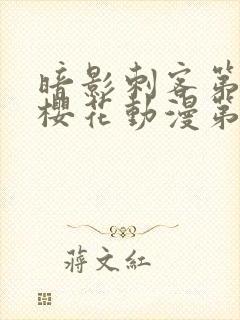 暗影刺客第
櫻花動漫第
蔣文紅